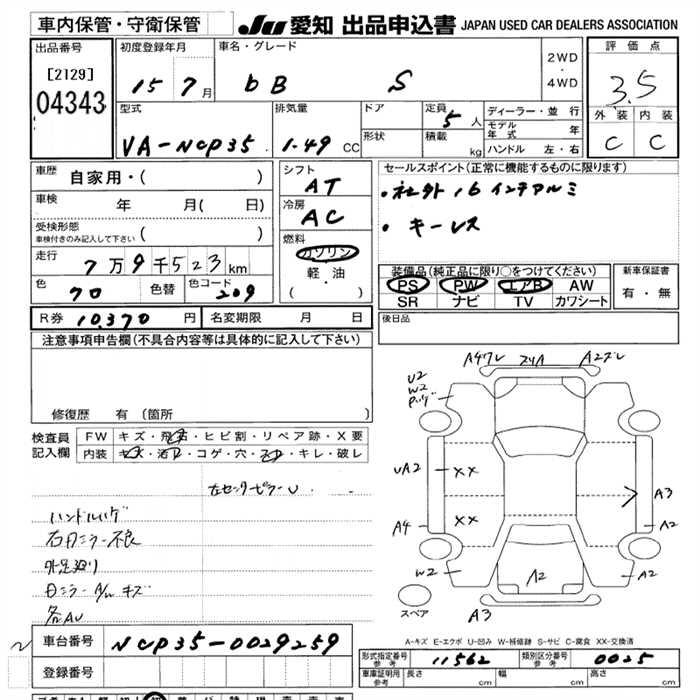 車内保管・守衛保管
JU 愛知 出品申込書 JAPAN USED CAR DEALERS ASSOCIATION
出品番号
[2129]
04343
初度登録年月
15 7月
車名・グレード
bB S
2WD
・
4WD
評価点
3.5
外装 内装
C C
型式
VA-NCP35
排気量
1.49 CC
ドア
形状
定員
5人
積載
kg
ディーラー・並行
モデル年式 年
ハンドル 左・右
車歴
自家用・( )
車検 年 月( 日)
受検形態
車検付きのみ記入して下さい ( )
走行
7万9千523km
色
70
色替
色コード
209
シフト
AT
冷房
AC
燃料
ガソリン
軽・油
( )
セールスポイント(正常に機能するものに限ります)
・社外16インチアルミ
・キーレス
装備品(純正品に限り○をつけてください)
PS PW エアB AW
SR ナビ TV カワシート
新車保証書
有・無
R券 10,370円
名変期限 月 日
後日品
注意事項申告欄(不具合内容等は具体的に記入して下さい)
修復歴 有(箇所 )
検査員
記入欄
FW キズ・飛石・ヒビ割・リペア跡・X要
内装 キズ・汚れ・コゲ・穴・・キレ・破レ
左センターピラーU
ハンドルハゲ
右Dミラー不良
外足廻り
Dミラー キズ
各AU
A4ワレ スリA A2ズレ
U2
W2
UA2
XX
XX
A4
W2
A3
A2
A2
A2
A3
スペア
A-キズ E-エクボ U-凹み W-補修跡 S-サビ C-腐食 XX-交換済
車台番号 NCP35-0029259
登録番号
型式指定番号
参考
11562
類別区分番号
参考
0025
車庫証明用
参考
長さ cm
幅 cm
高さ cm